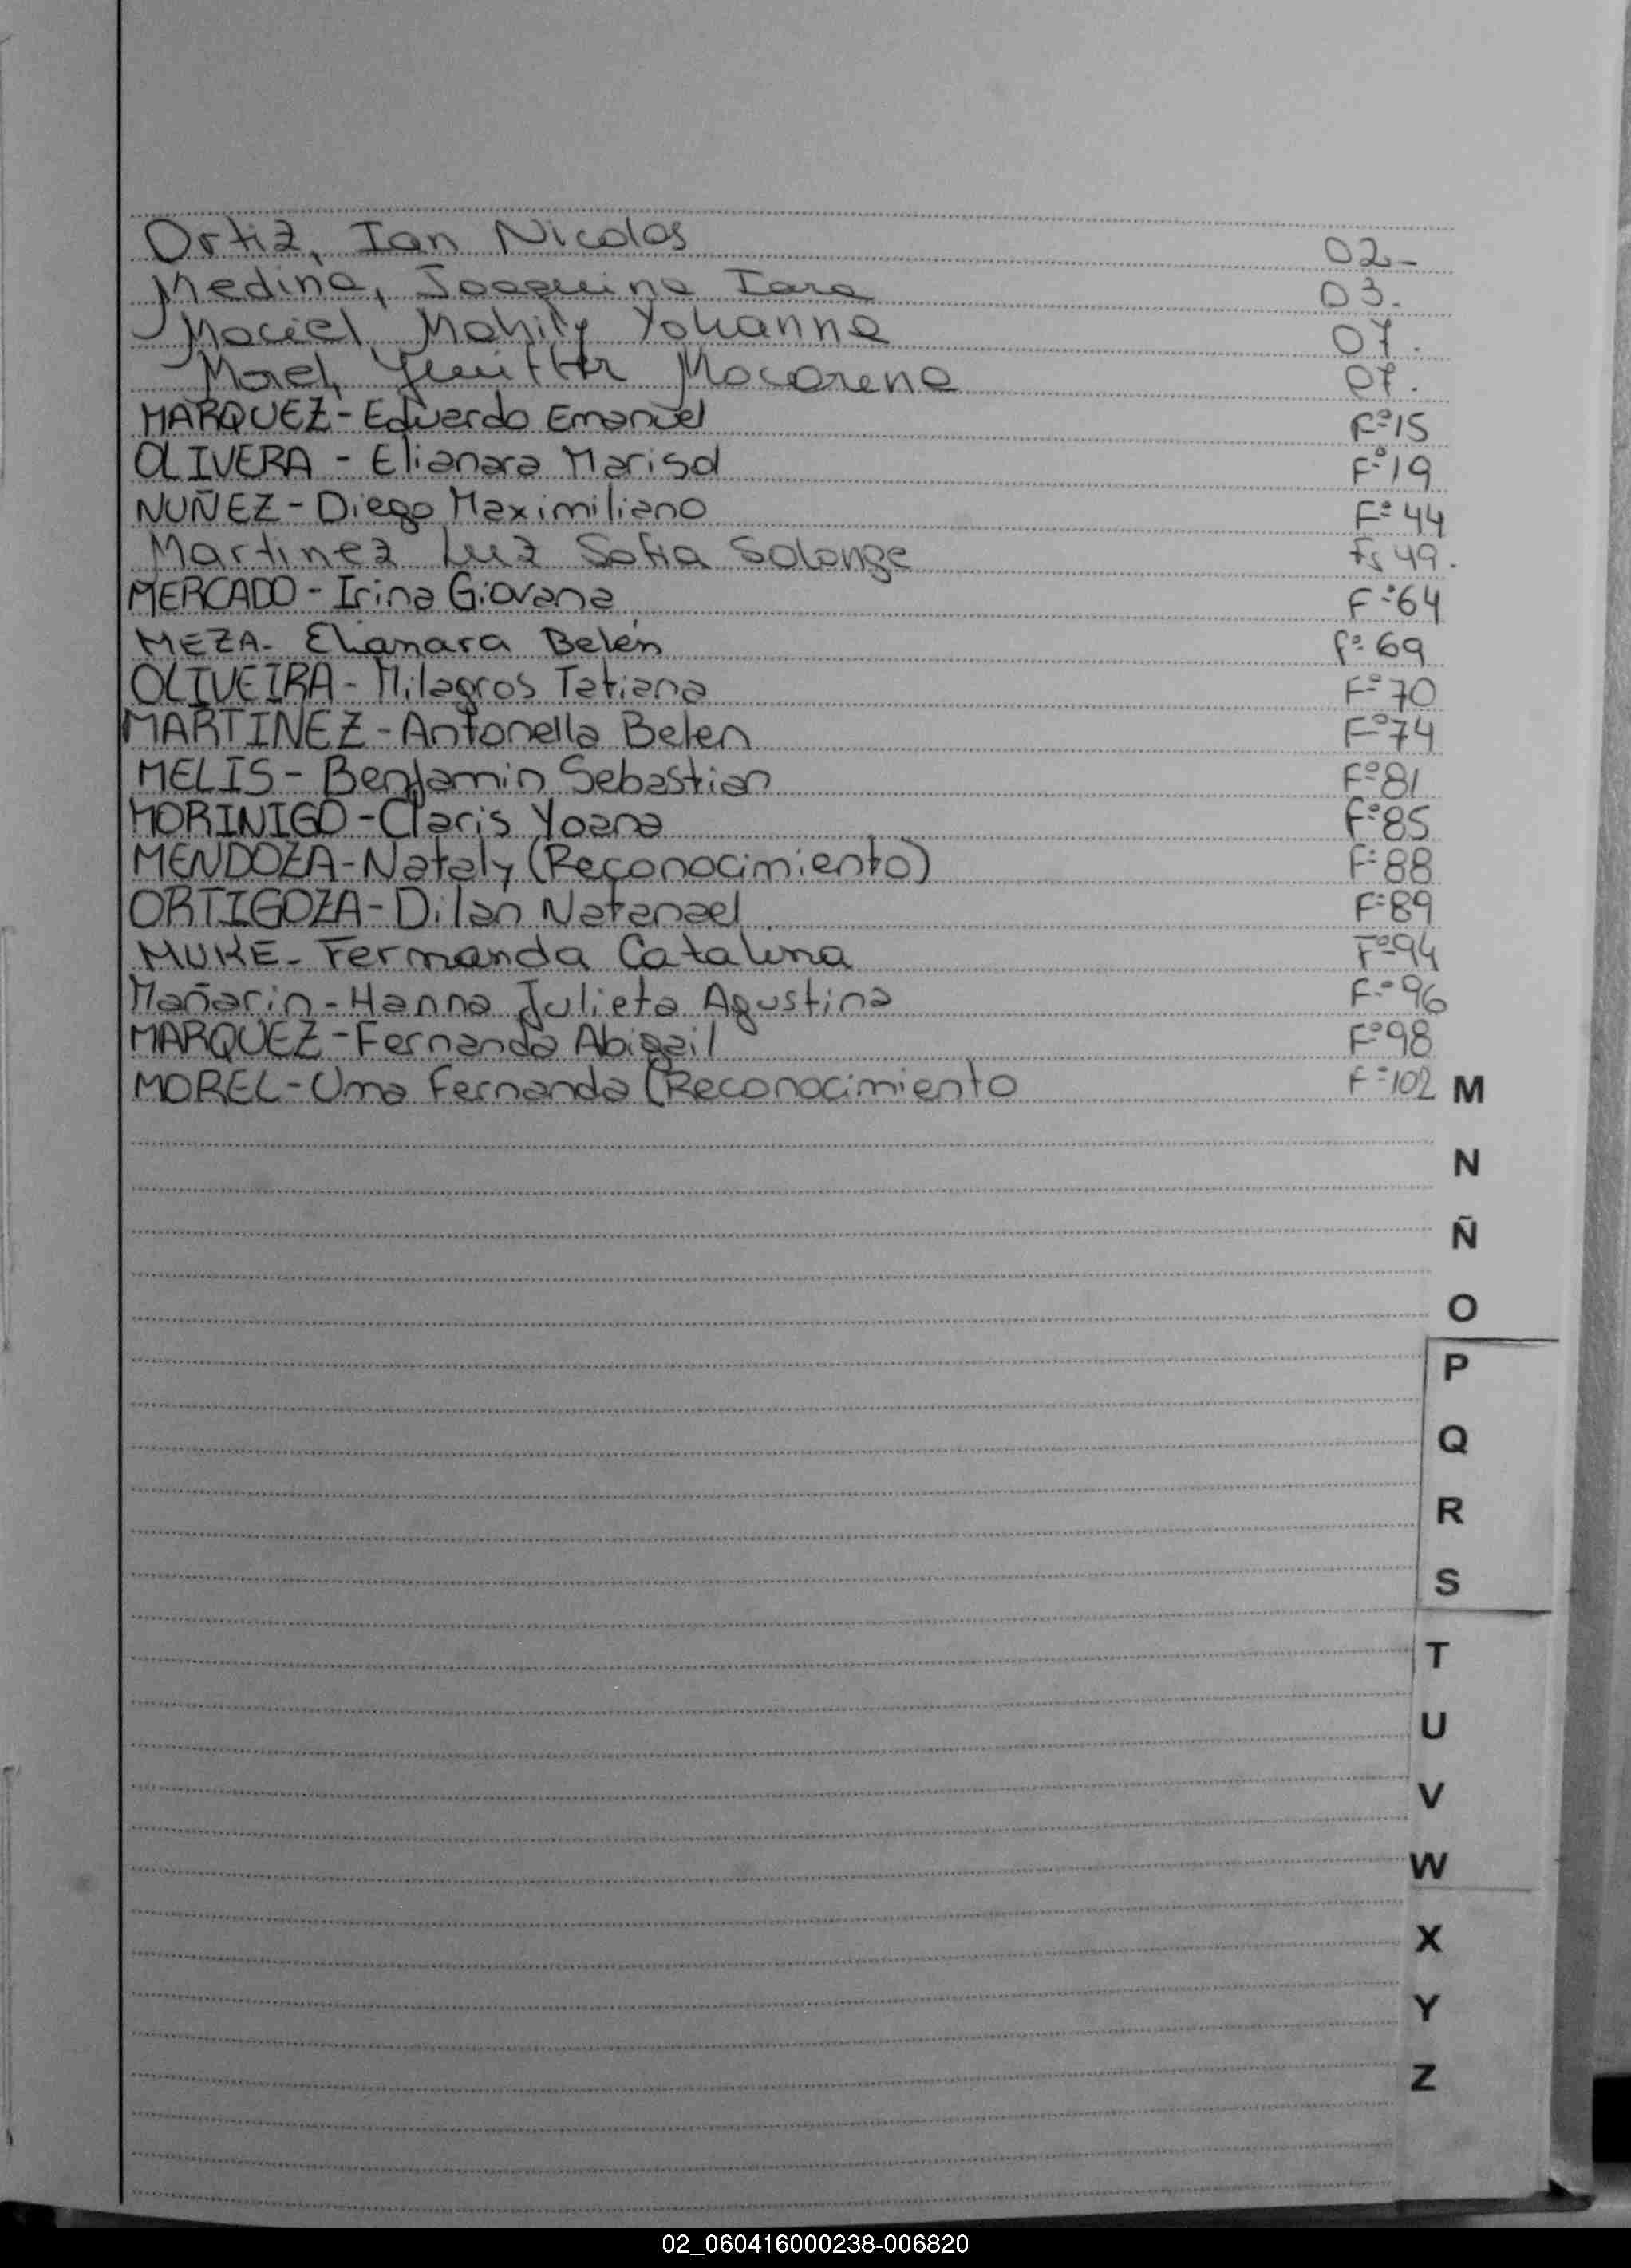 Ortiz, Ian Nicolas 02-
Medina, Joaquina Iara 03.
Maciel, Mahily Yohanna 07.
Morel, Macarena 07.
MARQUEZ - Eduardo Emanuel Fº 15
OLIVERA - Elianara Marisol Fº 19
NUÑEZ - Diego Maximiliano Fº 44
Martinez Luz Sofia Solange Fs 49.
MERCADO - Irina Giovana Fº 64
MEZA - Elianara Belén fº 69
OLIVEIRA - Milagros Tatiana Fº 70
MARTINEZ - Antonella Belen Fº 74
MELIS - Benjamin Sebastian Fº 81
MORINIGO - Claris Yoana Fº 85
MENDOZA - Nataly (Reconocimiento) Fº 88
ORTIGOZA - Dilan Natanael Fº 89
MUKE - Fernanda Catalina Fº 94
Mañarin - Hanna Julieta Agustina Fº 96
MARQUEZ - Fernanda Abigail Fº 98
MOREL - Uma Fernanda (Reconocimiento Fº 102
M
N
Ñ
O
P
Q
R
S
T
U
V
W
X
Y
Z
02_060416000238-006820